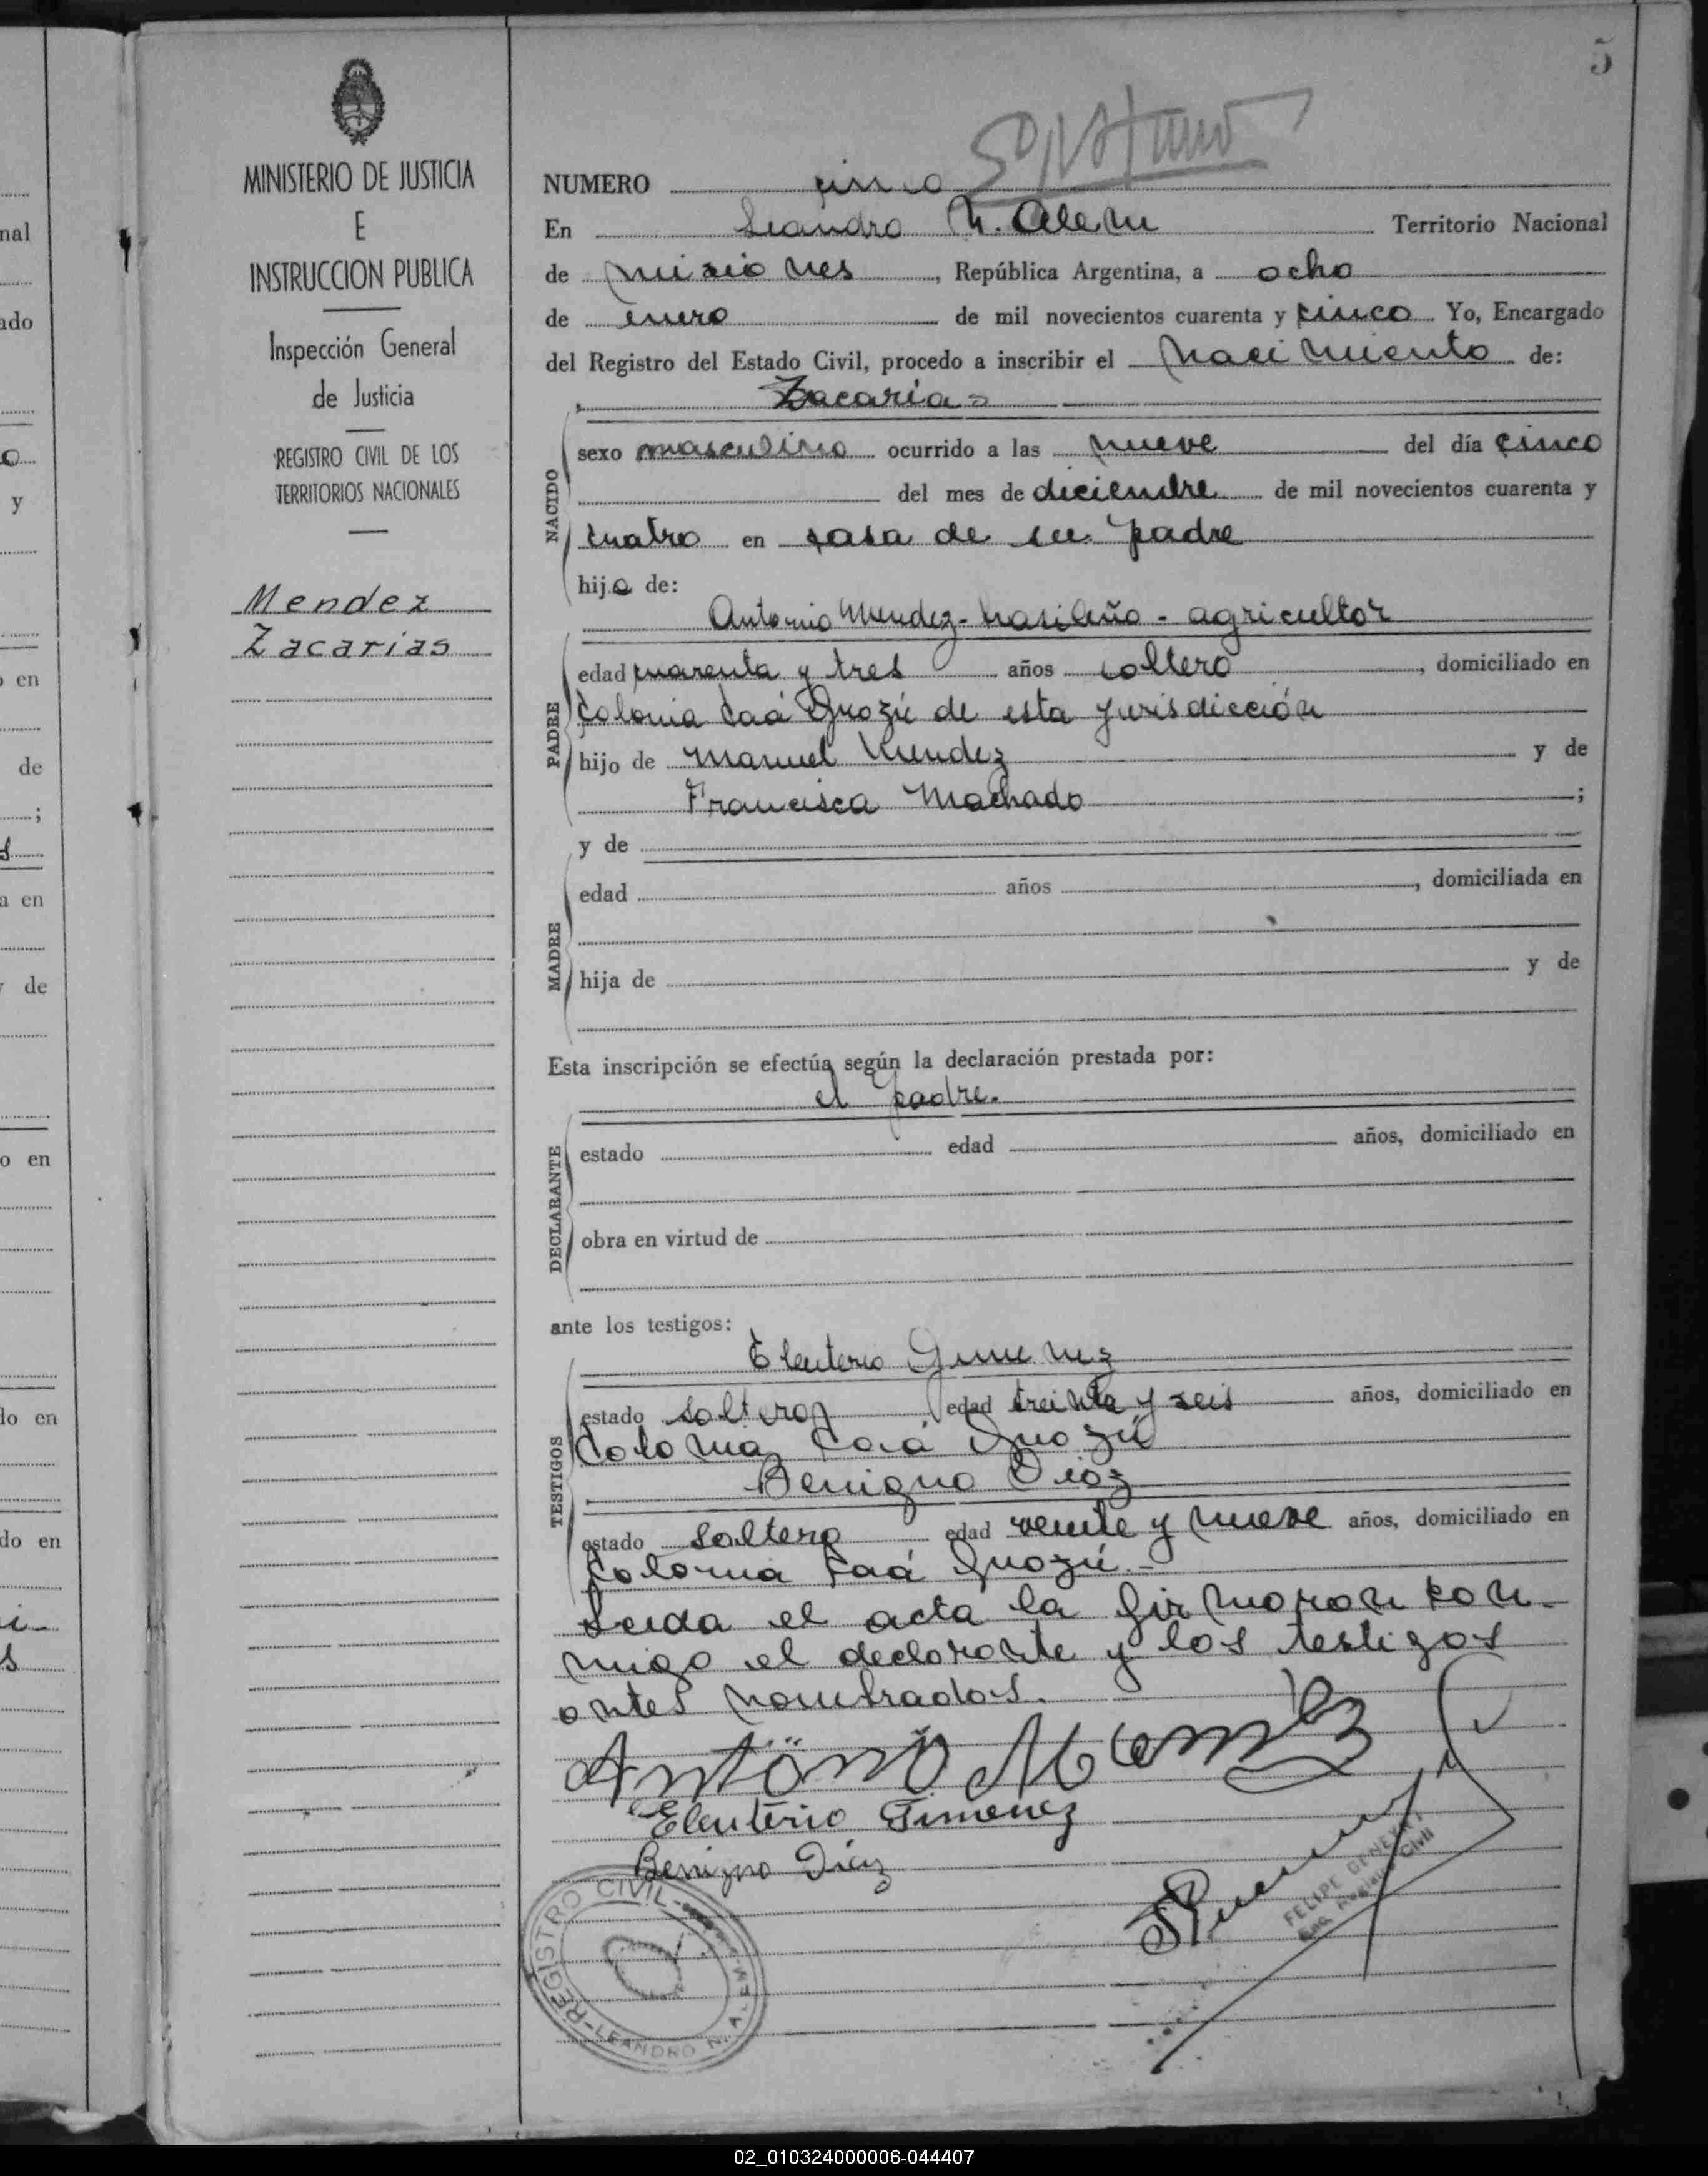 5
MINISTERIO DE JUSTICIA
E
INSTRUCCION PUBLICA
Inspección General
de Justicia
REGISTRO CIVIL DE LOS
TERRITORIOS NACIONALES
Mendez
Zacarías
NUMERO cinco
En Leandro N. Alem Territorio Nacional
de Misiones, República Argentina, a ocho
de enero de mil novecientos cuarenta y cinco Yo, Encargado
del Registro del Estado Civil, procedo a inscribir el nacimiento de:
Zacarías
NACIDO
sexo masculino ocurrido a las nueve del día cinco
del mes de diciembre de mil novecientos cuarenta y
cuatro en casa de su padre
hijo de:
Antonio Mendez - brasileño - agricultor
PADRE
edad cuarenta y tres años soltero, domiciliado en
Colonia Caá Guazú de esta jurisdicción
hijo de Manuel Mendez y de
Francisca Machado;
y de
MADRE
edad años, domiciliada en
hija de y de
Esta inscripción se efectúa según la declaración prestada por:
el padre.
DECLARANTE
estado edad años, domiciliado en
obra en virtud de
ante los testigos:
Eleuterio Gimenez
TESTIGOS
estado soltero edad treinta y seis años, domiciliado en
Colonia Caá Guazú
Benigno Diaz
estado soltero edad veinte y nueve años, domiciliado en
Colonia Caá Guazú.-
Leida el acta la firmaron con-
migo el declarante y los testigos
antes nombrados.
Antonio Mendez
Eleuterio Jimenez
Benigno Diaz
REGISTRO CIVIL
LEANDRO N. A
FELIPE
Enc. Registro Civil
02_010324000006-044407